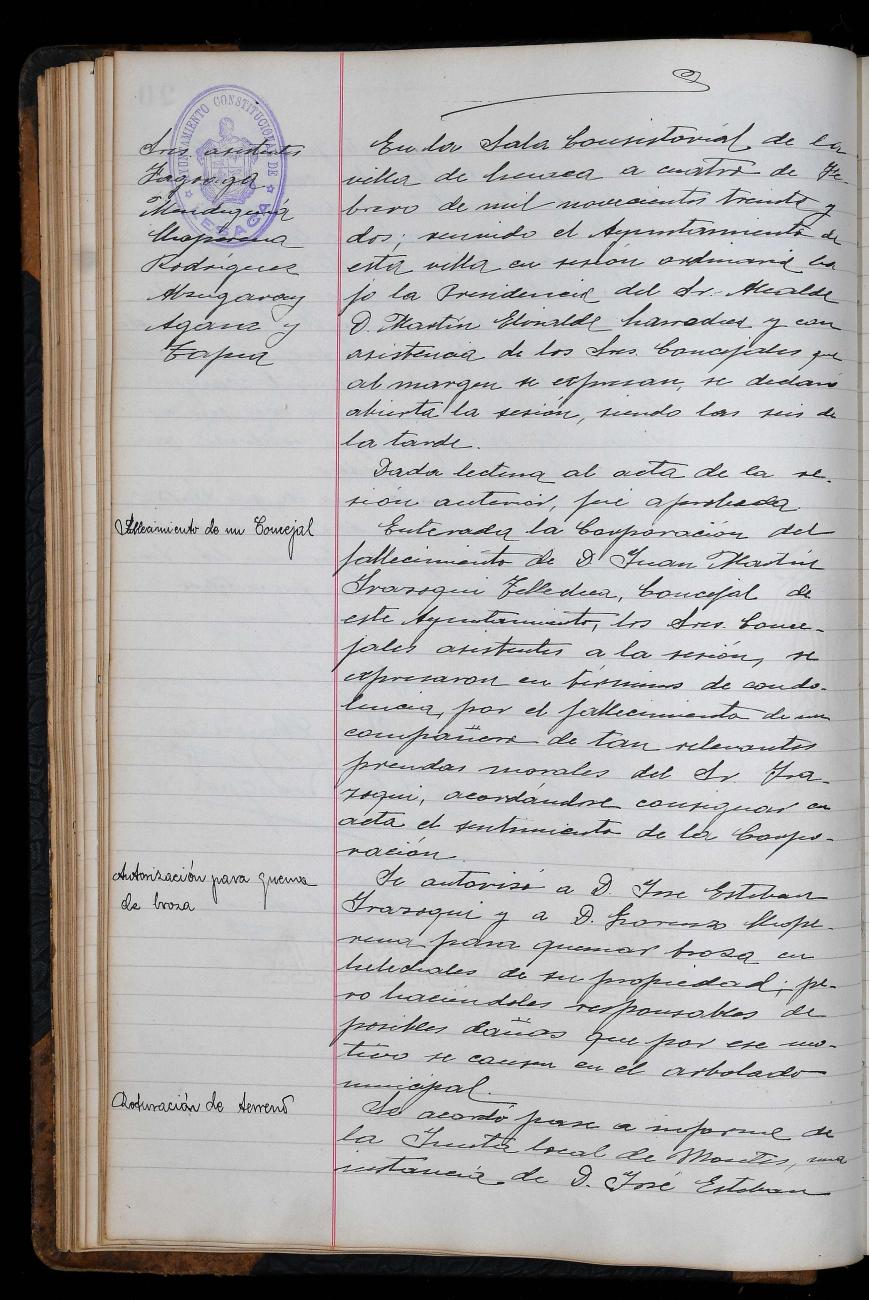 AYUNTAMIENTO CONSTITUCIONAL DE
LESACA
Sres. asistentes
Mendiguía
Rodríguez
Abzugaray
Aganz y
Tapia
En la Sala Consistorial de la
villa de Lesaca a cuatro de Fe-
brero de mil novecientos treinta y
dos; reunido el Ayuntamiento de
esta villa en sesión ordinaria ba
jo la Presidencia del Sr. Alcalde
D. Martín Elizalde y con
asistencia de los Sres. Concejales que
al margen se expresan, se declaró
abierta la sesión, siendo las seis de
la tarde.
Dada lectura al acta de la se-
sión anterior, fué aprobada
Fallecimiento de un Concejal
Enterada la Corporación del
fallecimiento de D. Juan Martín
Irazoqui Tellechea, Concejal de
este Ayuntamiento, los Sres. Conce-
jales asistentes a la sesión, se
expresaron en términos de condo-
lencia, por el fallecimiento de un
compañero de tan relevantes
prendas morales del Sr. Ira-
zoqui, acordándose consignar en
acta el sentimiento de la Corpo-
ración.
Autorización para quema
de broza
Se autorizó a D. Jose Esteban
Irazoqui y a D. Lorenzo Mope-
rena para quemar broza en
helechales de su propiedad; pe-
ro haciéndoles responsables de
posibles daños que por ese mo-
tivo se causen en el arbolado
municipal.
Roturación de terreno
Se acordó pase a informe de
la Junta local de Montes, una
instancia de D. José Esteban